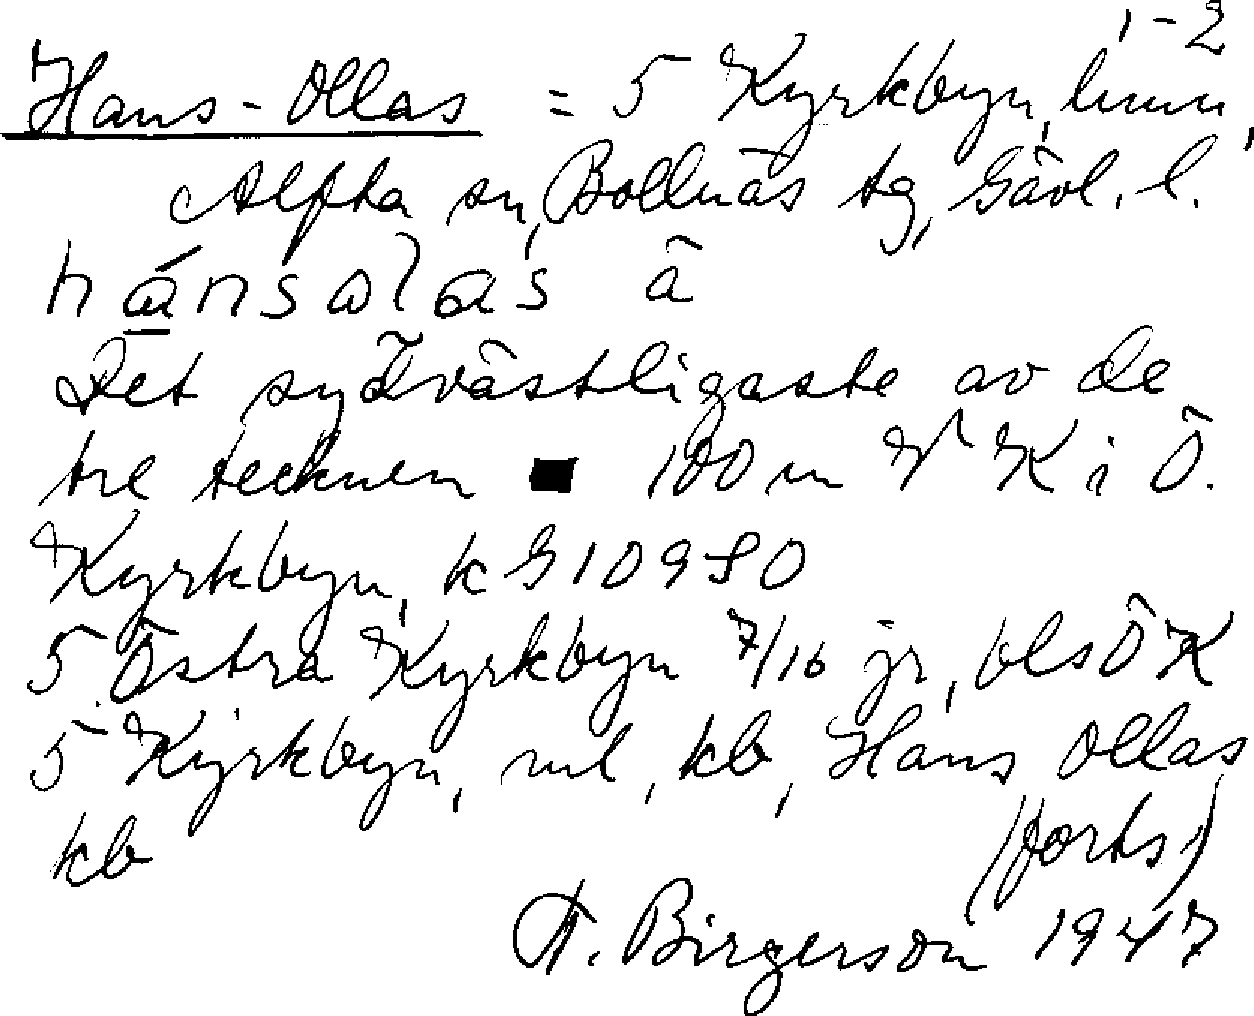 1-2
Hans-Ollas = 5 Kyrkbyn, hmn,
Alfta sn, Bollnäs tg, Gävl. l.
hánsωlas ä
Det sydvästligaste av de
tre tecknen ■ 100 m V K i Ö.
Kyrkbyn, k G 10980
5 Östra Kyrkbyn 7/16 jr, bls Ö K
5 Kyrkbyn, ml, kb, Hans Ollas
kb (forts)
A. Birgerson 1947